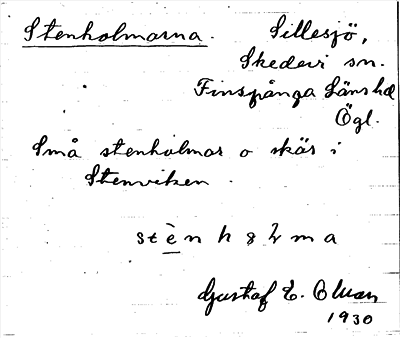 Stenholmarna. Sillesjö,
Skedevi sn.
Finspånga Läns hd
Ögl.
Små stenholmar o skär i
Stenviken.
Gustaf E.
1930